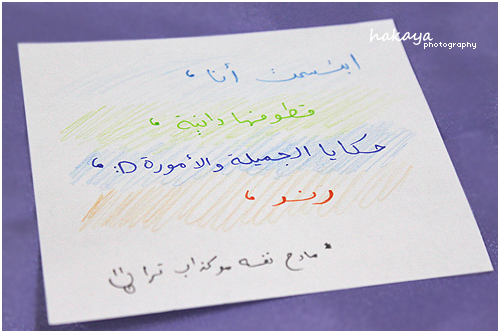 hakaya
photography
ابتسمت أنا ،
قطوفها دانية ،
حكايا الجميلة والأمورة D: ،
رند ،
* مادح نفسه مو كذاب ترا